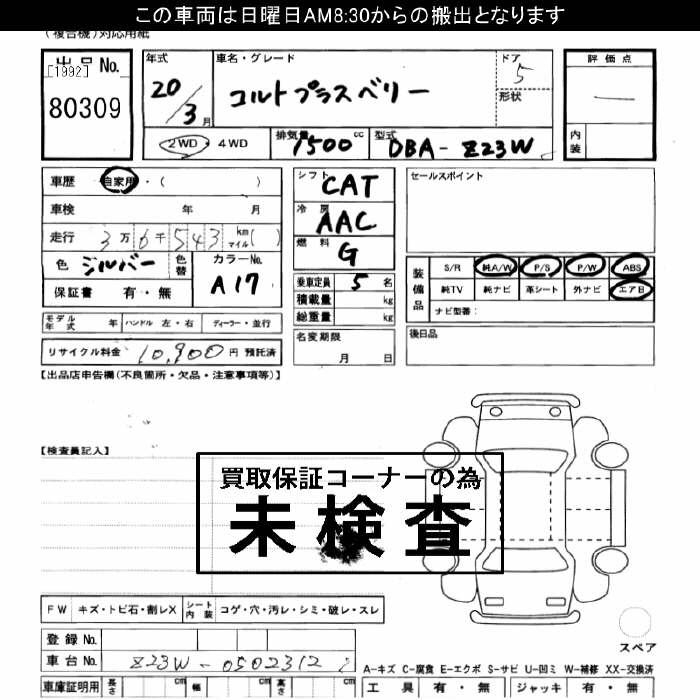 この車両は日曜日AM8:30からの搬出となります
(複合機)対応用紙
出品No.
[1992]
80309
年式
20/3月
車名・グレード
コルトプラスベリー
ドア
5
形状
評価点
—
内装
2WD・4WD
排気量
1500cc
型式
DBA-Z23W
車歴 自家用・( )
車検 年 月
走行 3万6千543 km マイル( )
色 シルバー
色替
カラーNo.
A17
保証書 有・無
シフト
CAT
冷房
AAC
燃料
G
乗車定員 5名
積載量 kg
総重量 kg
名変期限
月 日
セールスポイント
装備品
S/R 純A/W P/S P/W ABS
純TV 純ナビ 革シート 外ナビ エアB
ナビ型番:
後日品
モデル年式 年 ハンドル 左・右 ディーラー・並行
リサイクル料金 10,900円 預託済
【出品店申告欄(不良箇所・欠品・注意事項等)】
【検査員記入】
買取保証コーナーの為
未検査
FW キズ・トビ石・割レX シート内装 コゲ・穴・汚レ・シミ・破レ・スレ
登録No.
車台No. Z23W-0502312
スペア
A-キズ C-腐食 E-エクボ S-サビ U-凹ミ W-補修 XX-交換済
車庫証明用 長さ cm 幅 cm 高さ cm
工具 有・無 ジャッキ 有・無